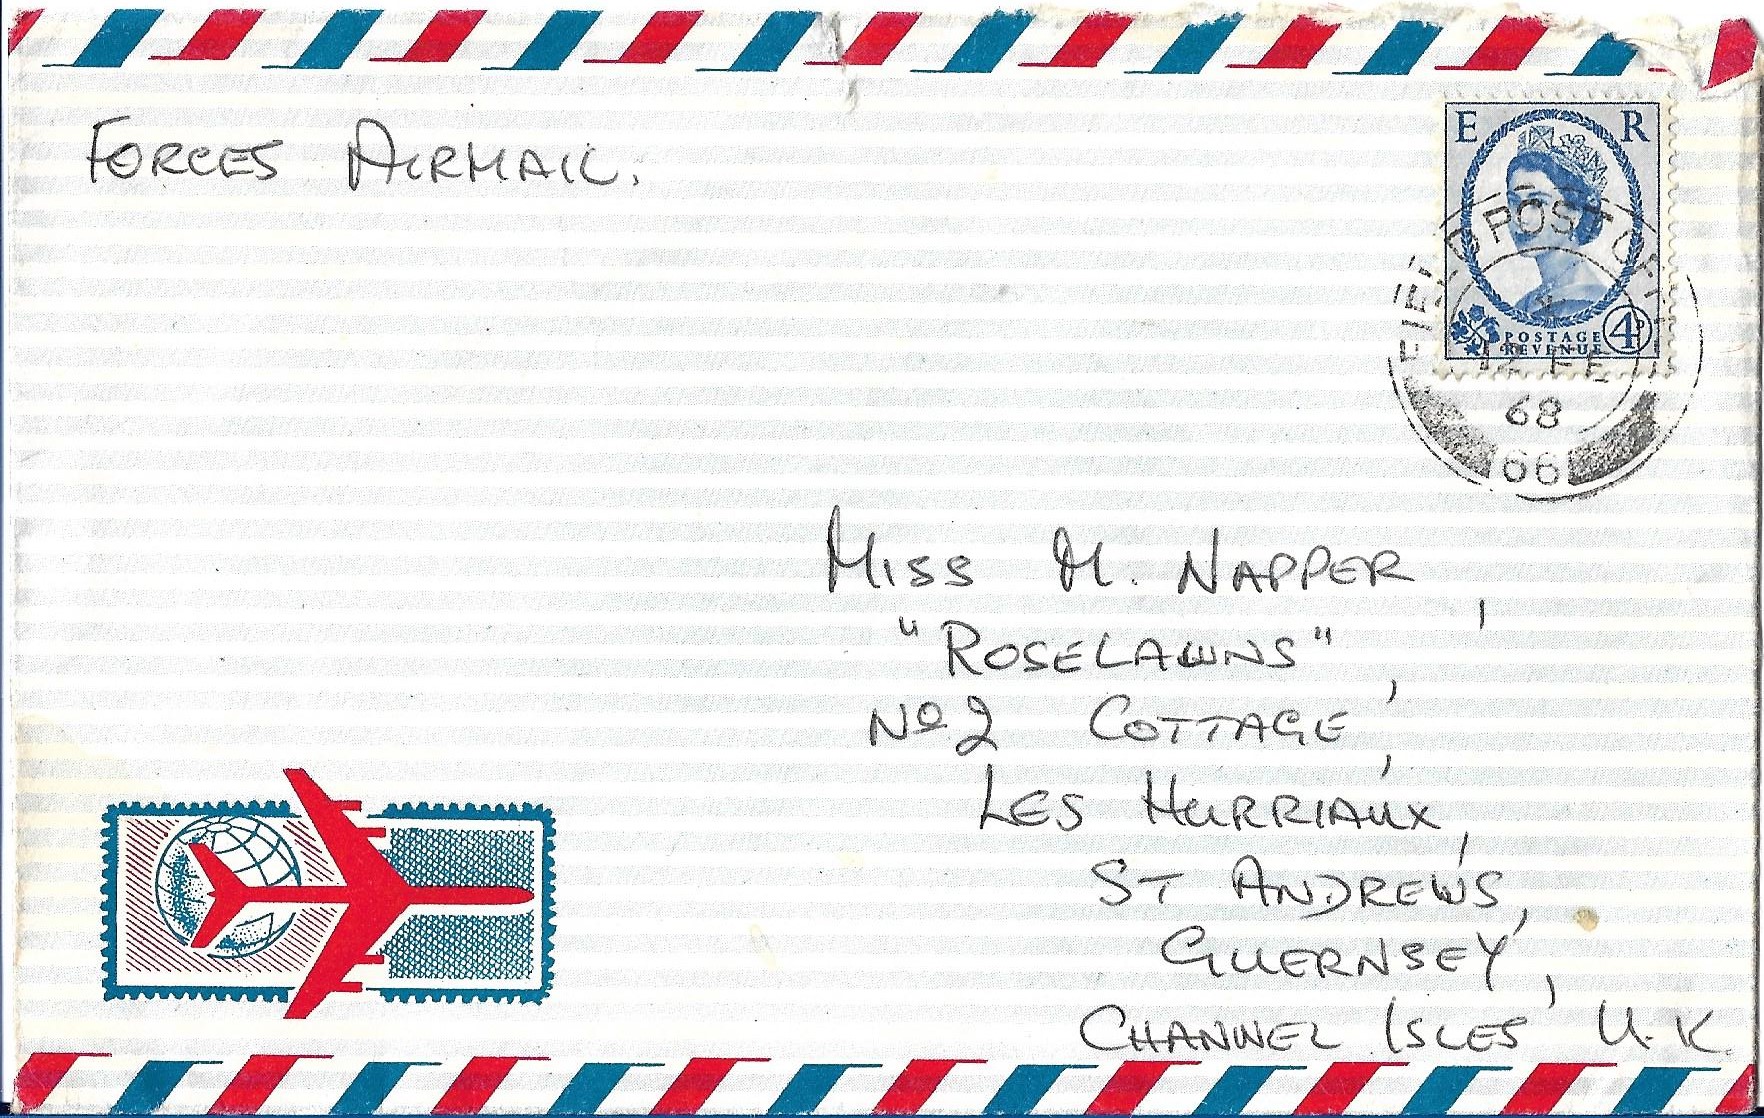 FORCES AIRMAIL.
E R
POSTAGE
REVENUE
4D
FIELD POST OFFICE
12 FE
68
66
MISS M. NAPPER,
"ROSELAWNS",
No 2 COTTAGE,
LES HURRIAUX,
ST ANDREWS,
GUERNSEY,
CHANNEL ISLES U.K.